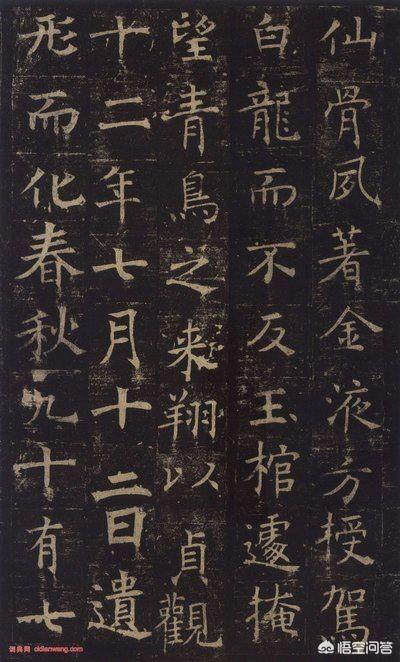 仙骨夙著金液方授駕
白龍而不反玉棺遽掩
望青鳥之来翔以貞觀
十二年七月十二日遺
形而化春秋九十有七
词典网
cidianwang.com
悟空问答